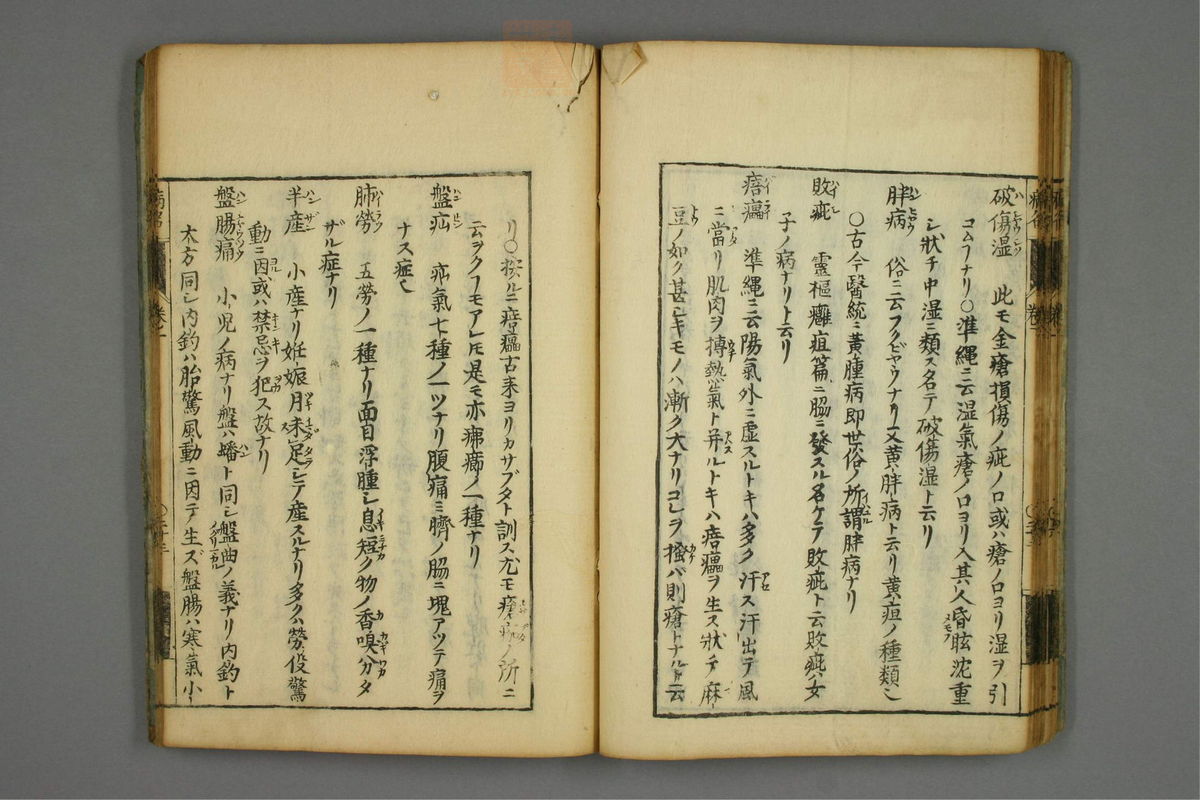 破傷湿 此モ金瘡損傷ノ疵ノ口或ハ瘡ノ口ヨリ湿ヲ引
コムフナリ〇準縄ニ云湿氣瘡ノ口ヨリ入其人昏眩沈重
シ狀チ中湿ニ類ス名テ破傷湿ト云リ
胖病 俗ニ云フクビヤウナリ又黄胖病ト云リ黄疸ノ種類也
〇古今醫統ニ黄腫病即世俗ノ所謂胖病ナリ
敗疵 靈樞癰疽篇ニ脇ニ發スル名ケテ敗疵ト云敗疵ハ女
子ノ病ナリト云リ
㾦癗 準縄ニ云陽氣外ニ虚スルトキハ多ク汗ス汗出テ風
ニ當リ肌肉ヲ摶熱氣ト并ルトキハ㾦癗ヲ生ス狀チ麻
豆ノ如ク甚シキモノハ漸ク大ナリコレヲ搔バ則瘡トナルト云
リ〇按ルニ㾦癗古来ヨリカサブタト訓ス尤モ瘡ノ所ニ
云ヲクフモアレモ是モ亦ノ一種ナリ
盤疝 疝氣七種ノ一ツナリ腹痛ミ臍ノ脇ニ塊アツテ痛ヲ
ナス症也
肺勞 五勞ノ一種ナリ面目浮腫シ息短ク物ノ香嗅分タ
ザル症ナリ
半産 小産ナリ妊娠月未足シテ産スルナリ多クハ勞役驚
動ニ因或ハ禁忌ヲ犯ス故ナリ
盤腸痛 小児ノ病ナリ盤ハ蟠ト同シ盤曲ノ義ナリ内釣ト
大方同シ内釣ハ胎驚風動ニ因テ生ズ盤腸ハ寒氣小